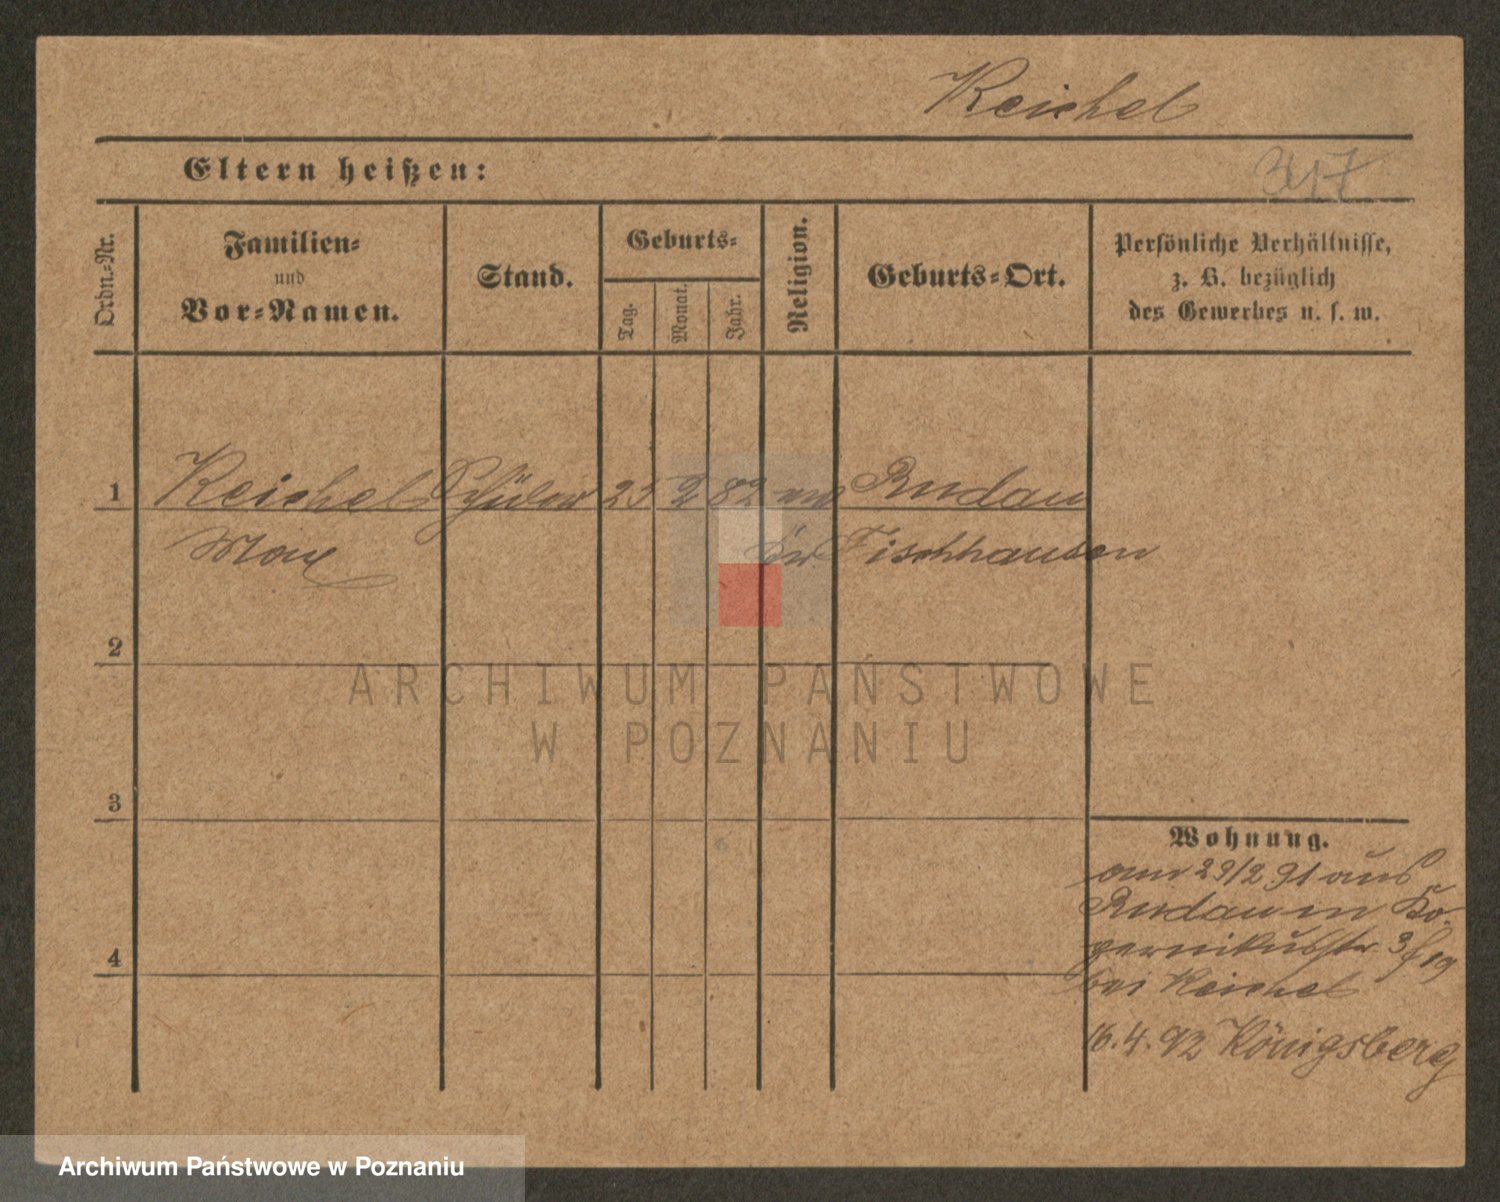 Reichel
Eltern heißen:
347
Ordn.-Nr.
Familien-
und
Vor-Namen.
Stand.
Geburts-
Tag.
Monat.
Jahr.
Religion.
Geburts-Ort.
Persönliche Verhältnisse,
z. B. bezüglich
des Gewerbes u. s. w.
1 Reichel Schüler 2 82 Rudau
Max Kr Fischhausen
2
3
4
Wohnung.
am 29/2 91 aus
Rudau in Ko-
pernikusstr. 3
bei Reichel
16.4.92 Königsberg
ARCHIWUM PAŃSTWOWE
W POZNANIU
Archiwum Państwowe w Poznaniu